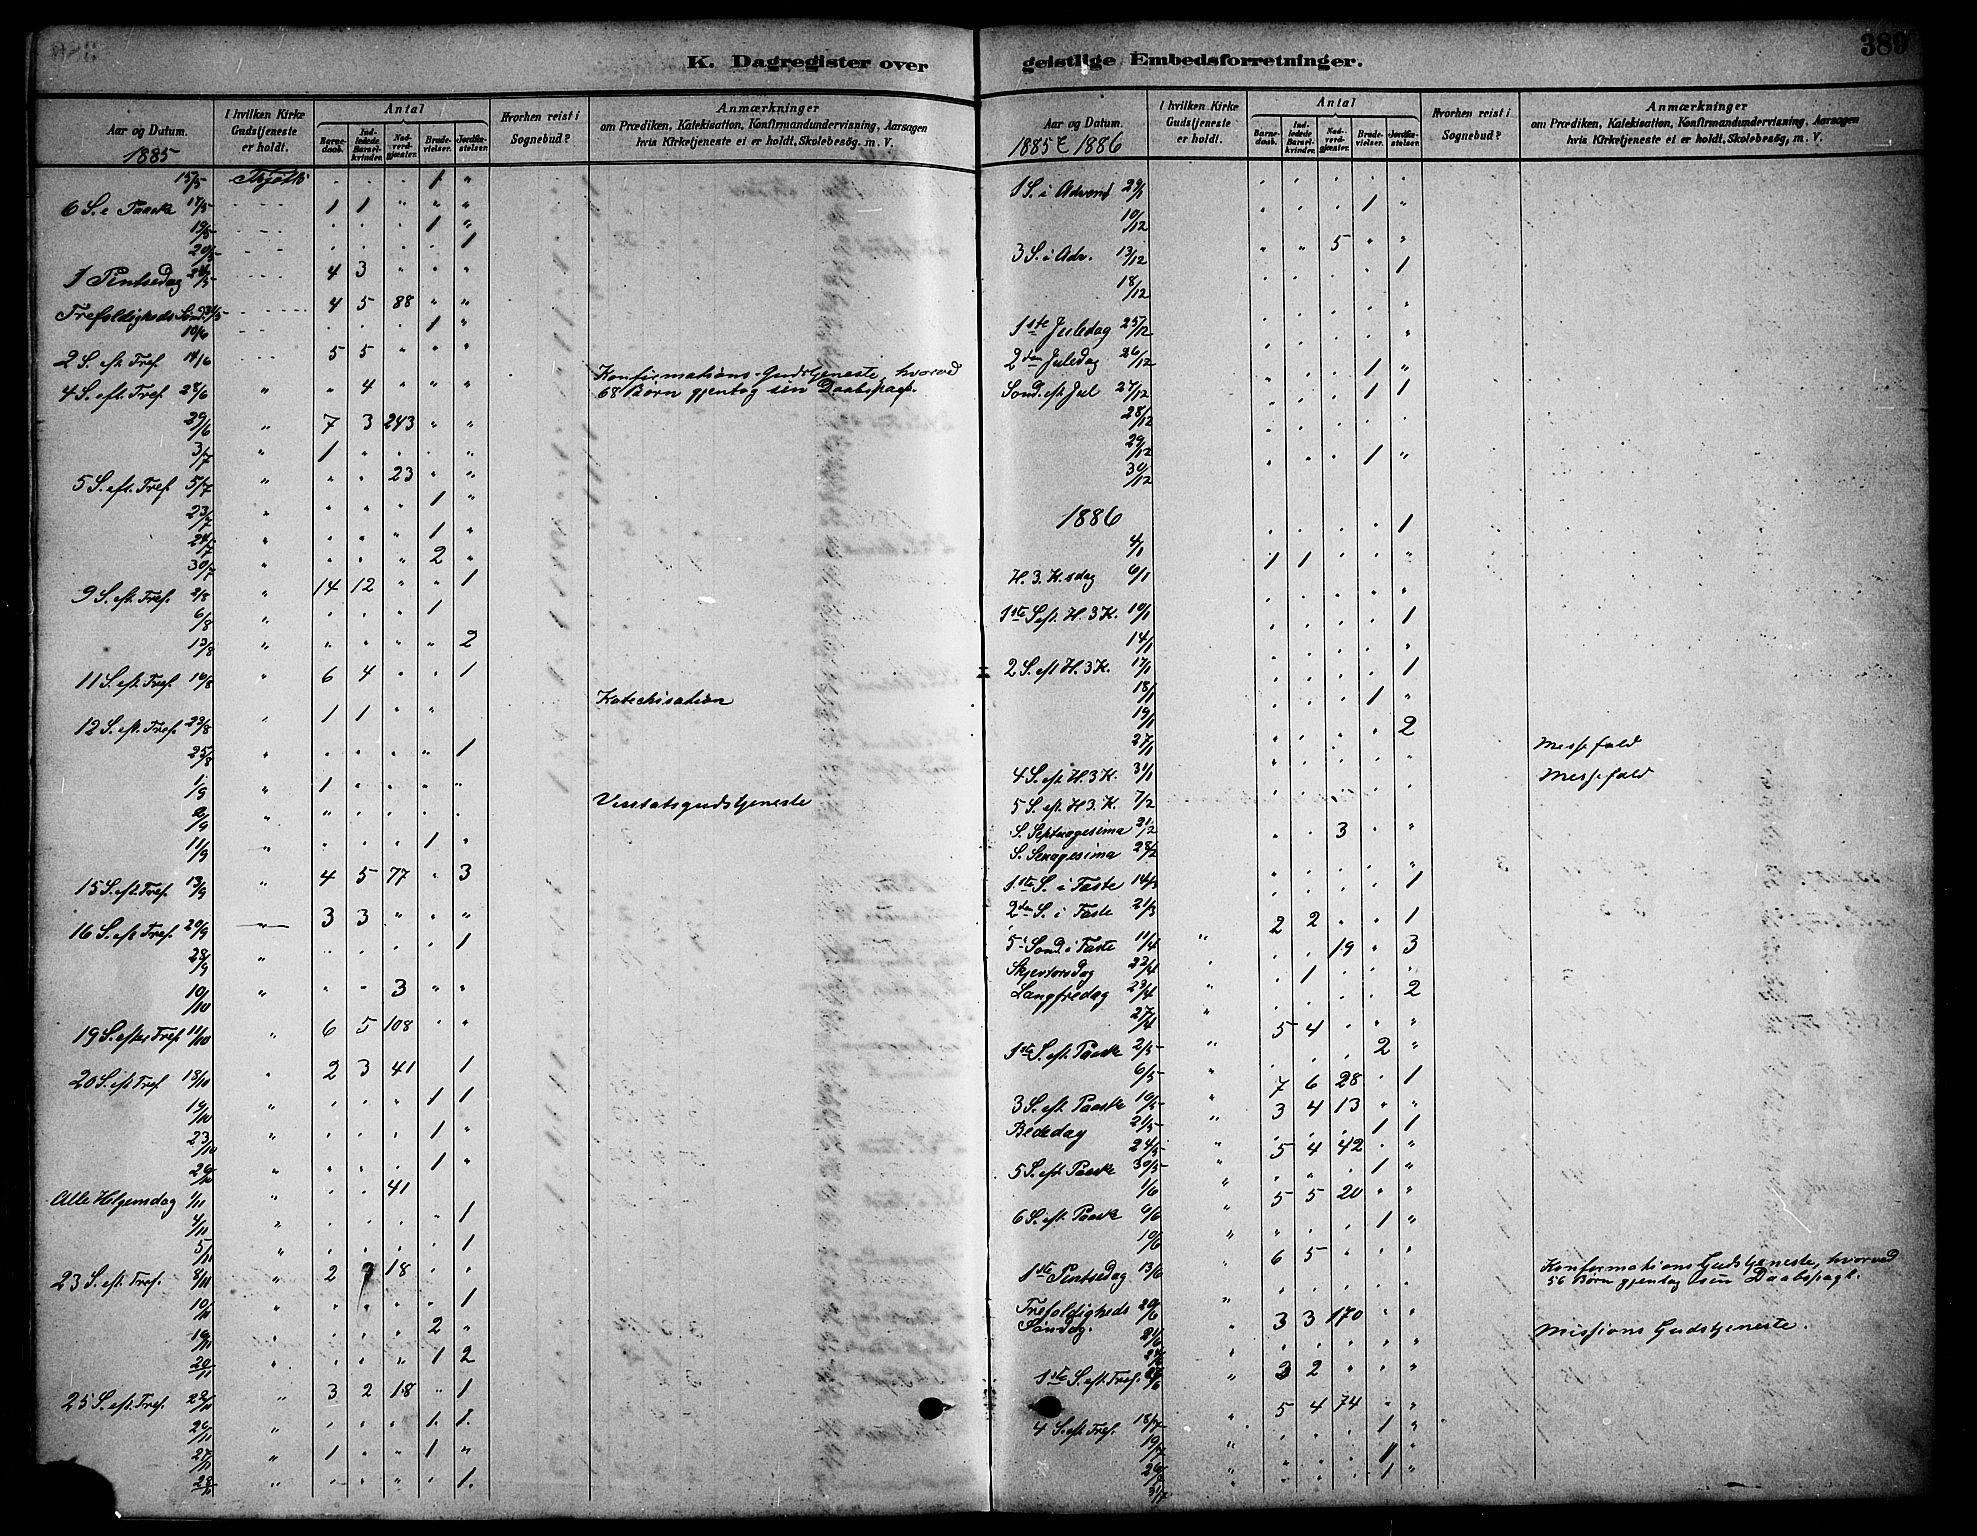 K. Dagregister over geistlige Embedsforretninger.
389
Aar og Datum.
1885
I hvilken Kirke Gudstjeneste er holdt.
Antal
Barnedaab.
Indledede Barselkvinder.
Nadverdgjæster.
Brudevielser.
Jordfæstelser.
Hvorhen reist i Sognebud?
Anmærkninger
om Prædiken, Katekisation, Konfirmandundervisning, Aarsagen
hvis Kirketjeneste ei er holdt, Skolebesøg, m. V.
15/5 " " " 1 "
6 S. e Paaske 17/5 1 1 " " "
19/5 " " " 1 "
20/5 " " " " 1
1 Pintsedag 24/5 4 3 " " "
Trefoldigheds Sönd. 31/5 4 5 88 " "
10/6 " " " 1 "
2 S. eft. Tref. 14/6 5 5 " " "
4 S. eft. Tref. 28/6 " " 4 " " " Konfirmations-Gudstjeneste, hvorved
68 Börn gjentog sin Daabspagt.
29/6 " 7 3 243 " "
3/7 " 1 " " " "
5 S. eft. Tref. 5/7 " " " 23 " "
23/7 " " " " 1 "
24/7 " " " " 1 "
30/7 " " " " 2 "
9 S. eft. Tref. 2/8 " 14 12 " " 1
6/8 " " " " 1
13/8 " " " " " 2
11 S. eft. Tref. 16/8 " 6 4 " " 1
12 S. eft. Tref. 23/8 " 1 1 " " Katechisation
25/8 " " " " " 1
1/9 " 1 " " " "
2/9 " " " " " " Visitatsgudstjeneste
11/9 " " " " 1 "
15 S. eft. Tref. 13/9 " 4 5 77 " 3
16 S. eft Tref. 20/9 " 3 3 " " "
28/9 " " " " " 1
10/10 " " " 3 " "
19 S. efter Tref. 11/10 " 6 5 108 " "
20 S. eft Tref. 18/10 " 2 3 41 1
19/10 " " " " 1 1
23/10 " " " " 1 "
29/10 " " " " 1 "
Alle Helgensdag 1/11 " " " 41 " "
4/11 " " " " " 1
5/11 " " " " " 1
23 S. eft. Tref. 8/11 " 2 18 " "
10/11 " " " " " 1
19/11 " " " 2 "
20/11 " " " " 1 2
25 S. eft. Tref. 22/11 " 3 2 18 " 1
26/11 " " " " 1. 1.
27/11 " 1 " " 1 "
28/11 " " " " " 1.
Aar og Datum.
1885 & 1886
I hvilken Kirke Gudstjeneste er holdt.
Antal
Barnedaab.
Indledede Barselkvinder.
Nadverdgjæster.
Brudevielser.
Jordfæstelser.
Hvorhen reist i Sognebud?
Anmærkninger
om Prædiken, Katekisation, Konfirmandundervisning, Aarsagen
hvis Kirketjeneste ei er holdt, Skolebesøg, m. V.
1 S. i Advent " " " " "
10/12 " " " 1 "
3 S. i Adv. 13/12 " " 5 " "
18/12 " " " " 1
1ste Juledag 25/12 " " " " "
2den Juledag 26/12 " " " " "
Sönd. eft Jul 27/12 " " " 1 "
28/12 " " " 1 1
29/12 " " " " "
30/12 " " " 1 "
1886
4/1 " " " " 1
H. 3. K.sdag 6/1 1 1 " " "
1ste S. eft. H. 3 K. 10/1 " " " " "
14/1 " " " " 1
2 S. eft H. 3 K. 17/1 " " " " "
18/1 " " " " 1
19/1 " " " 1 "
27/1 " " " " 2
4 S. eft. H. 3 K. 31/1 " " " " " Messefald
5 S. eft. H 3. K. 7/2 " " " " " Messefald
S. Septuagesima 21/2 " " 3 " "
S. Sexagesima 28/2 " " " " "
1ste S. i Faste 14/3 " " " " 1
2den S. i Faste 21/3 2 2 " " 1
5 Sönd. i Faste 11/4 " " " 19 " 3
Skjertorsdag 22/4 " " 1 " " "
Langfredag 23/4 " " " " " 2
27/4 " 5 4 " " "
1ste S. eft Paaske 2/5 " " " " 2 "
6/5 " 7 6 28 " 1
3 S. eft. Paaske " 3 4 13 " "
Bededag 21/5 " " " " 1 1
" 5 4 42 " "
5 S. eft Paaske 30/5 " " " " 1 "
1/6 " 5 5 20 " "
6 S. eft. Paaske 6/6 " " " " 1 "
10/6 " 6 5 " " "
1ste Pintsedag 13/6 " " " " " Konfirmations Gudstjeneste, hvorved
56 Börn gjentog sin Daabspagt.
Trefoldigheds 20/6 " 3 3 170 " "
Söndag. Missions Gudstjeneste.
1ste S. eft. Tref. " 3 2 " " "
5 4 74 " "
4 S. eft Tref. 18/7 " " " " 1 "
19/7 " " " " 1 "
" " " " 1 "